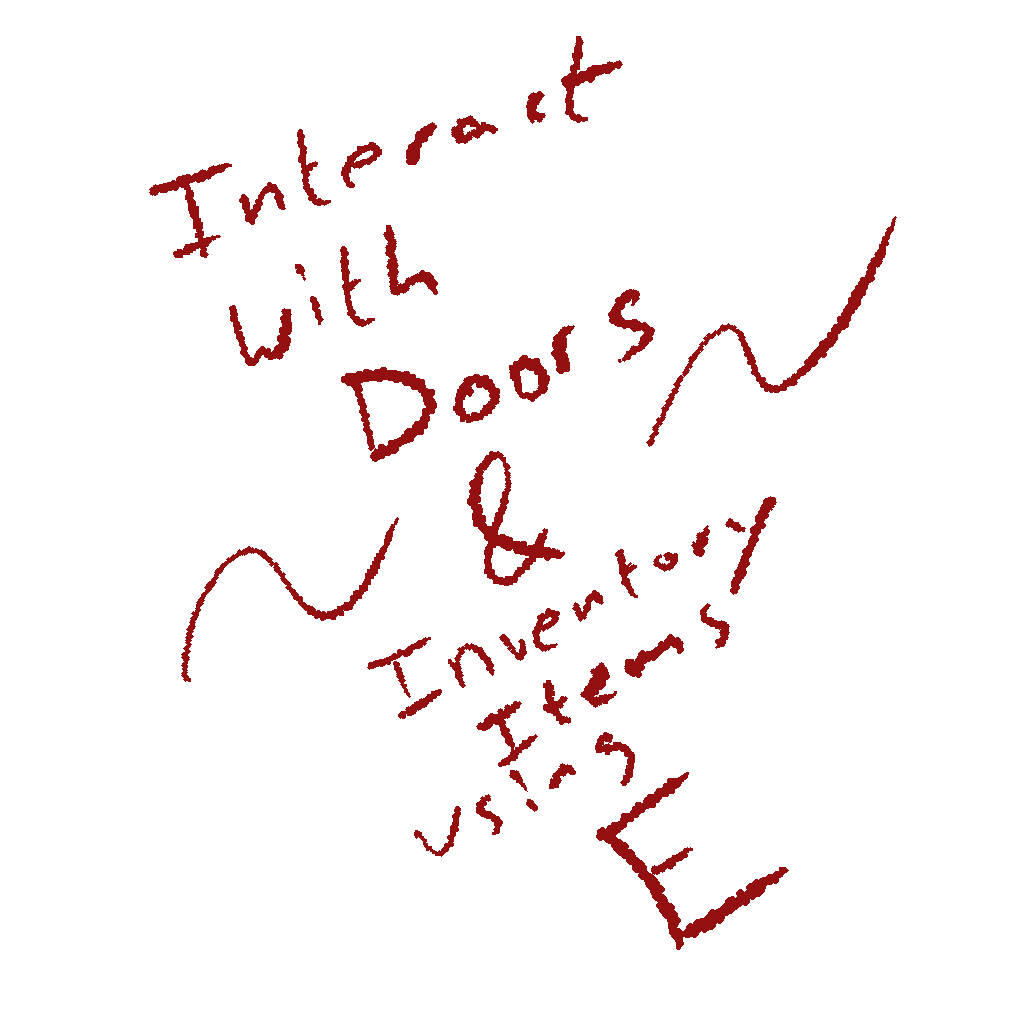 Interact
with
Doors
&
Inventory
Items
using
E